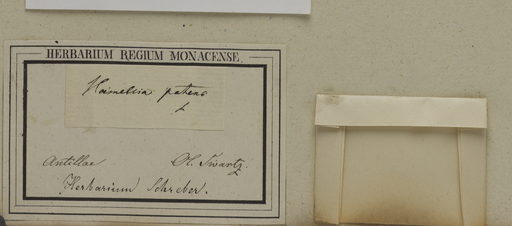 HERBARIUM REGIUM MONACENSE.
Hamellia patens
L
Antillae Ol. Swartz.
Herbarium Schreber.